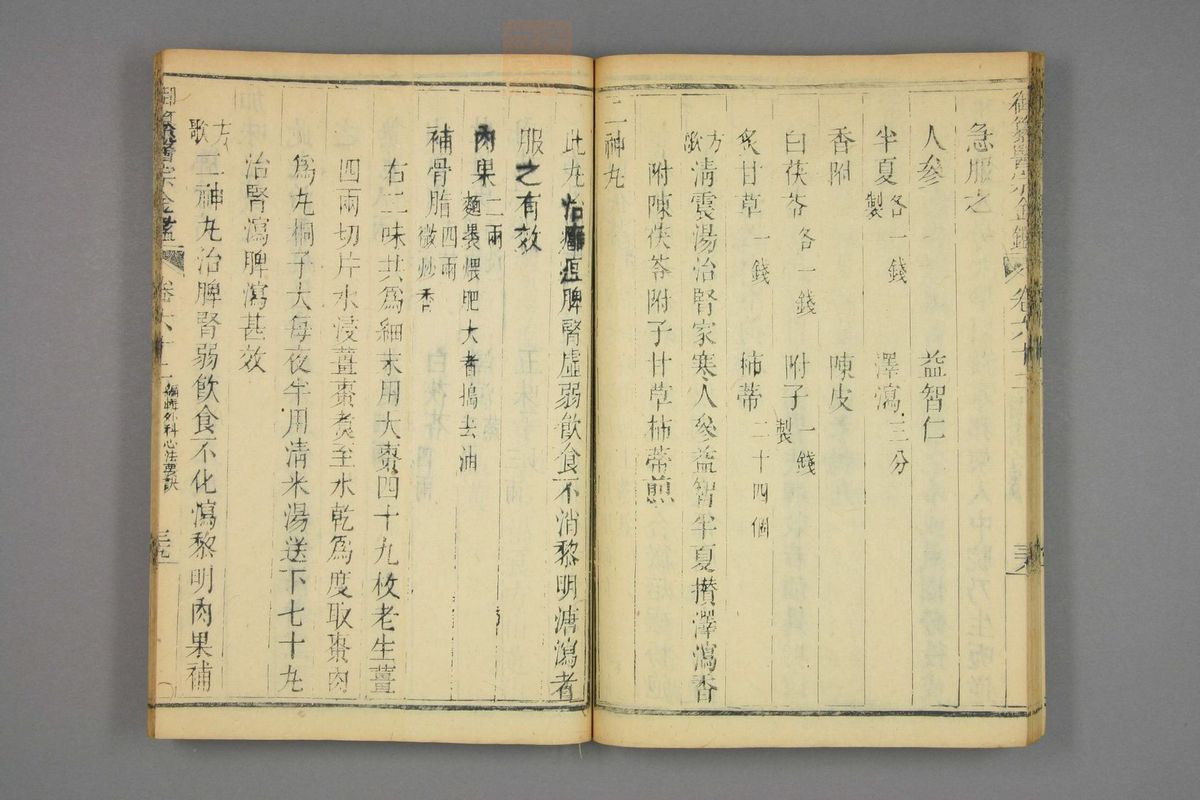 御纂醫宗金鑑 卷六十二
急服之
人參 益智仁
半夏各一錢製 澤瀉三分
香附 陳皮
白茯苓各一錢 附子一錢製
炙甘草一錢 柿蒂二十四個
方歌清震湯治腎家寒人參益智半夏攢澤瀉香
附陳茯苓附子甘草柿蒂煎
二神丸
此丸治癰疽脾腎虛弱飲食不消黎明溏瀉者
服之有效
肉果二兩麵裹煨肥大者搗去油
補骨脂四兩微炒香
右二味共爲細末用大棗四十九枚老生薑
四兩切片水浸薑棗煑至水乾爲度取棗肉
爲丸桐子大每夜半用清米湯送下七十丸
治腎瀉脾瀉甚效
方歌二神丸治脾腎弱飲食不化瀉黎明肉果補
御纂醫宗金鑑 卷六十二 編輯外科心法要訣